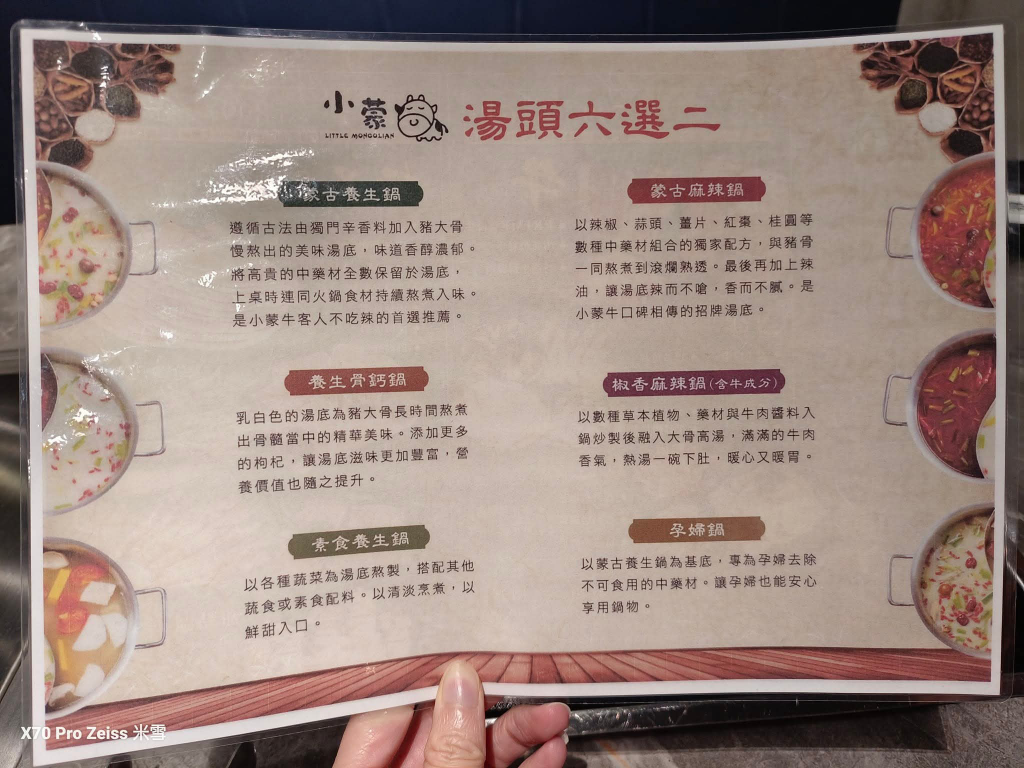 小蒙
LITTLE MONGOLIAN
湯頭六選二
蒙古養生鍋
遵循古法由獨門辛香料加入豬大骨
慢熬出的美味湯底，味道香醇濃郁。
將高貴的中藥材全數保留於湯底，
上桌時連同火鍋食材持續熬煮入味。
是小蒙牛客人不吃辣的首選推薦。
蒙古麻辣鍋
以辣椒、蒜頭、薑片、紅棗、桂圓等
數種中藥材組合的獨家配方，與豬骨
一同熬煮到滾爛熟透。最後再加上辣
油，讓湯底辣而不嗆，香而不膩。是
小蒙牛口碑相傳的招牌湯底。
養生骨鈣鍋
乳白色的湯底為豬大骨長時間熬煮
出骨髓當中的精華美味。添加更多
的枸杞，讓湯底滋味更加豐富，營
養價值也隨之提升。
椒香麻辣鍋(含牛成分)
以數種草本植物、藥材與牛肉醬料入
鍋炒製後融入大骨高湯，滿滿的牛肉
香氣，熱湯一碗下肚，暖心又暖胃。
素食養生鍋
以各種蔬菜為湯底熬製，搭配其他
蔬食或素食配料。以清淡烹煮，以
鮮甜入口。
孕婦鍋
以蒙古養生鍋為基底，專為孕婦去除
不可食用的中藥材。讓孕婦也能安心
享用鍋物。
X70 Pro Zeiss 米雪